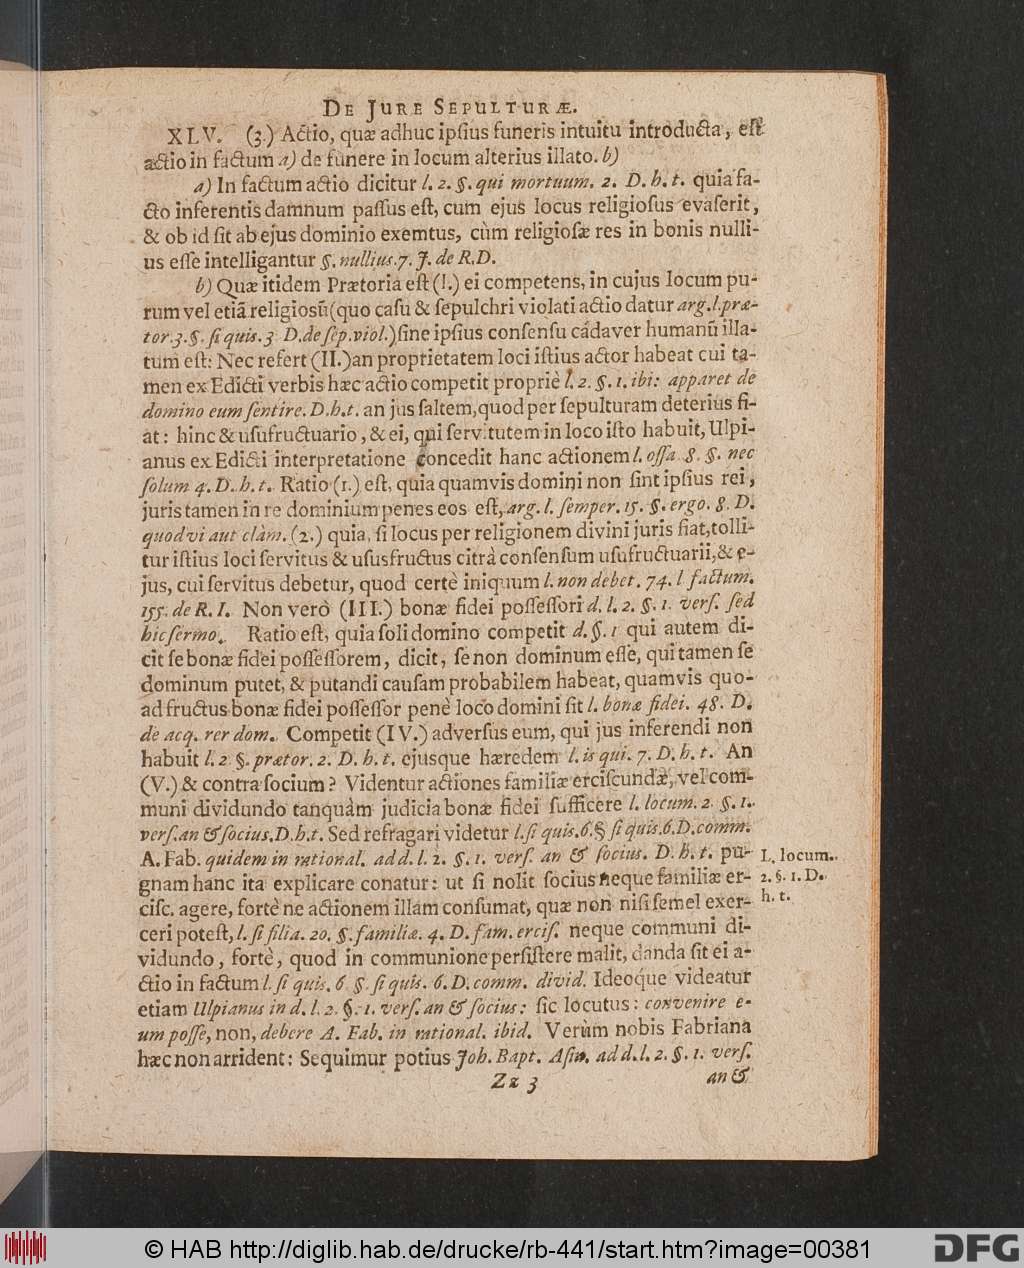 DE JURE SEPULTURÆ.
XLV. (3.) Actio, quæ adhuc ipſius funeris intuitu introducta, eſt
actio in factum a) de funere in locum alterius illato. b)
a) In factum actio dicitur l. 2. §. qui mortuum. 2. D. h. t. quia fa-
cto inferentis damnum paſſus eſt, cum ejus locus religioſus evaſerit,
& ob id ſit ab ejus dominio exemtus, cùm religioſæ res in bonis nulli-
us eſſe intelligantur §. nullius. 7. J. de R. D.
b) Quæ itidem Prætoria eſt (I.) ei competens, in cujus locum pu-
rum vel etiã religioſũ (quo caſu & ſepulchri violati actio datur arg. l. præ-
tor. 3. §. ſi quis. 3 D. de ſep. viol.) ſine ipſius conſenſu cádaver humanũ illa-
tum eſt: Nec refert (II.) an proprietatem loci iſtius actor habeat cui ta-
men ex Edicti verbis hæc actio competit propriè l. 2. §. 1. ibi: apparet de
domino eum ſentire. D. h. t. an jus ſaltem, quod per ſepulturam deterius fi-
at: hinc & uſufructuario, & ei, qui ſervitutem in loco iſto habuit, Ulpi-
anus ex Edicti interpretatione concedit hanc actionem l. oſſa 8. §. nec
ſolum 4. D. h. t. Ratio (1.) eſt, quia quamvis domini non ſint ipſius rei,
juris tamen in re dominium penes eos eſt, arg. l. ſemper. 15. §. ergo. 8. D.
quod vi aut clàm. (2.) quia, ſi locus per religionem divini juris fiat, tolli-
tur iſtius loci ſervitus & uſusfructus citrà conſenſum uſufructuarii, & e-
jus, cui ſervitus debetur, quod certè iniquum l. non debet. 74. l factum.
155. de R. I. Non verò (III.) bonæ fidei poſſeſſori d. l. 2. §. 1. verſ. ſed
hic ſermo. Ratio eſt, quia ſoli domino competit d. §. 1 qui autem di-
cit ſe bonæ fidei poſſeſſorem, dicit, ſe non dominum eſſe, qui tamen ſe
dominum putet, & putandi cauſam probabilem habeat, quamvis quo-
ad fructus bonæ fidei poſſeſſor penè loco domini ſit l. bonæ fidei. 48. D.
de acq. rer dom. Competit (IV.) adverſus eum, qui jus inferendi non
habuit l. 2 §. prætor. 2. D. h. t. ejusque hæredem l. is qui. 7. D. h. t. An
(V.) & contra ſocium? Videntur actiones familiæ erciſcundæ, vel com-
muni dividundo tanquàm judicia bonæ fidei ſufficere l. locum. 2. §. 1.
verſ. an & ſocius. D. h. t. Sed refragari videtur l. ſi quis. 6. § ſi quis. 6. D. comm.
A. Fab. quidem in rational. ad d. l. 2. §. 1. verſ. an & ſocius. D. h. t. pu-
gnam hanc ita explicare conatur: ut ſi nolit ſocius neque familiæ er-
ciſc. agere, fortè ne actionem illam conſumat, quæ non niſi ſemel exer-
ceri poteſt, l. ſi filia. 20. §. familiæ. 4. D. fam. erciſ. neque communi di-
vidundo, fortè, quod in communione perſiſtere malit, danda ſit ei a-
ctio in factum l. ſi quis. 6 §. ſi quis. 6. D. comm. divid. Ideoque videatur
etiam Ulpianus in d. l. 2. §. 1. verſ. an & ſocius: ſic locutus: convenire e-
um poſſe, non, debere A. Fab. in rational. ibid. Verùm nobis Fabriana
hæc non arrident: Sequimur potius Joh. Bapt. Aſin. ad d. l. 2. §. 1. verſ.
L. locum.
2. §. 1. D.
h. t.
Zz 3
an &
© HAB http://diglib.hab.de/drucke/rb-441/start.htm?image=00381
DFG